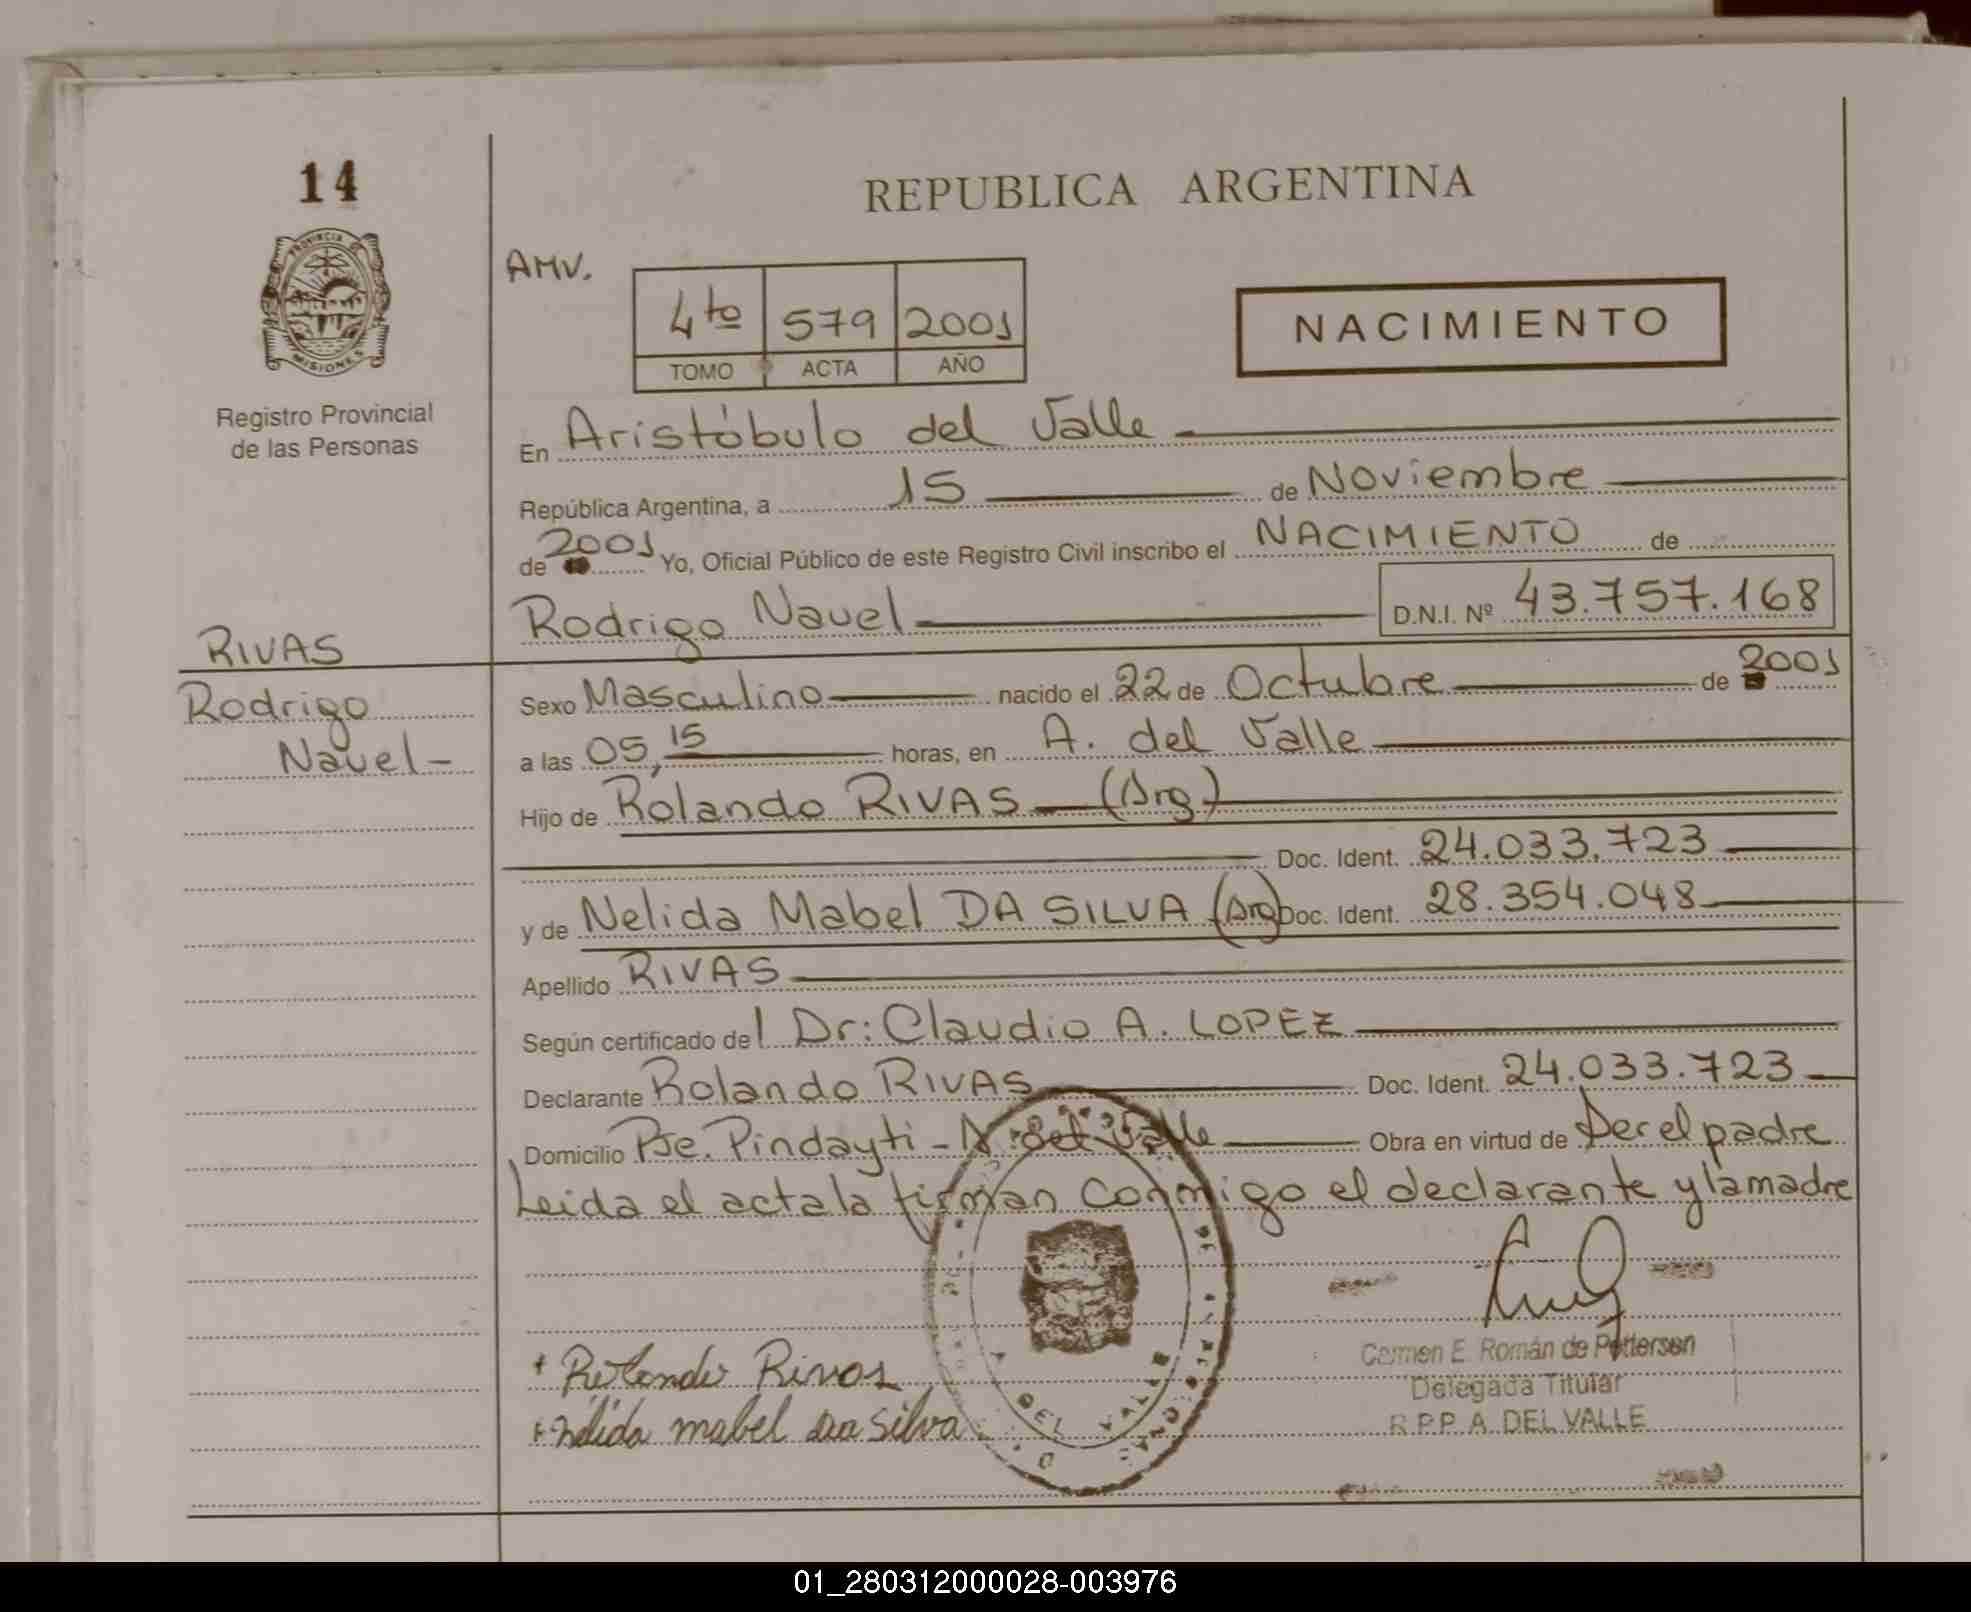 14
REPUBLICA ARGENTINA
PROVINCIA DE MISIONES
AMV.
4to 579 2001
TOMO ACTA AÑO
NACIMIENTO
Registro Provincial
de las Personas
En Aristóbulo del Valle
República Argentina, a 15 de Noviembre
de 2001 Yo, Oficial Público de este Registro Civil inscribo el NACIMIENTO de
Rodrigo Nauel D.N.I. Nº 43.757.168
RIVAS
Rodrigo
Nauel-
Sexo Masculino nacido el 22 de Octubre de 2001
a las 05,15 horas, en A. del Valle
Hijo de Rolando RIVAS (Arg)
Doc. Ident. 24.033.723
y de Nelida Mabel DA SILVA (Arg) Doc. Ident. 28.354.048
Apellido RIVAS
Según certificado del Dr: Claudio A. LOPEZ
Declarante Rolando RIVAS Doc. Ident. 24.033.723
Domicilio Pje. Pindayti - A. del Valle Obra en virtud de Ser el padre
Leida el acta la firman conmigo el declarante y la madre
Rolando Rivas
nélida mabel da silva
DEL VALLE
Carmen E. Román de Pettersen
Delegada Titular
R.P.P. A. DEL VALLE
01_280312000028-003976